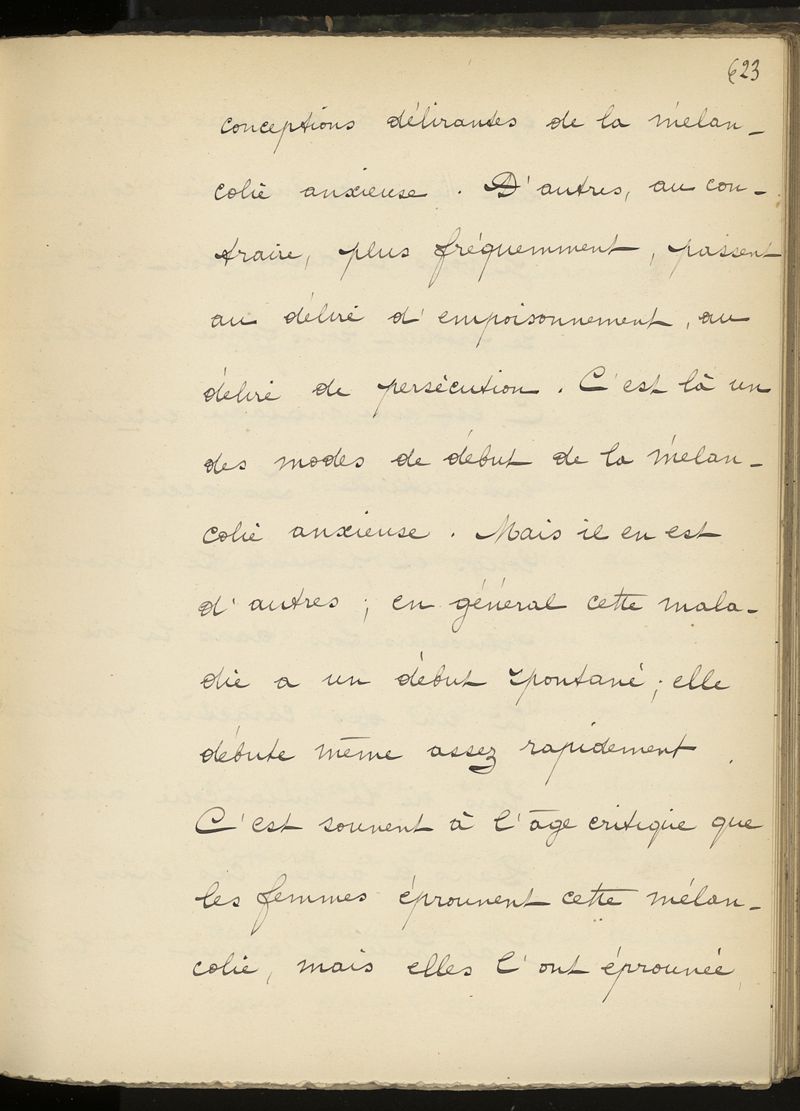 623
conceptions délirantes de la mélan_
colie anxieuse. D'autres, au con_
traire, plus fréquemment, passent
au délire d'empoisonnement, au
délire de persécution. C'est là un
des modes de début de la mélan_
colie anxieuse. Mais il en est
d'autres; en général cette mala_
die a un début spontané; elle
débute même assez rapidement.
C'est souvent à l'âge critique que
les femmes éprouvent cette mélan_
colie, mais elles l'ont éprouvée,